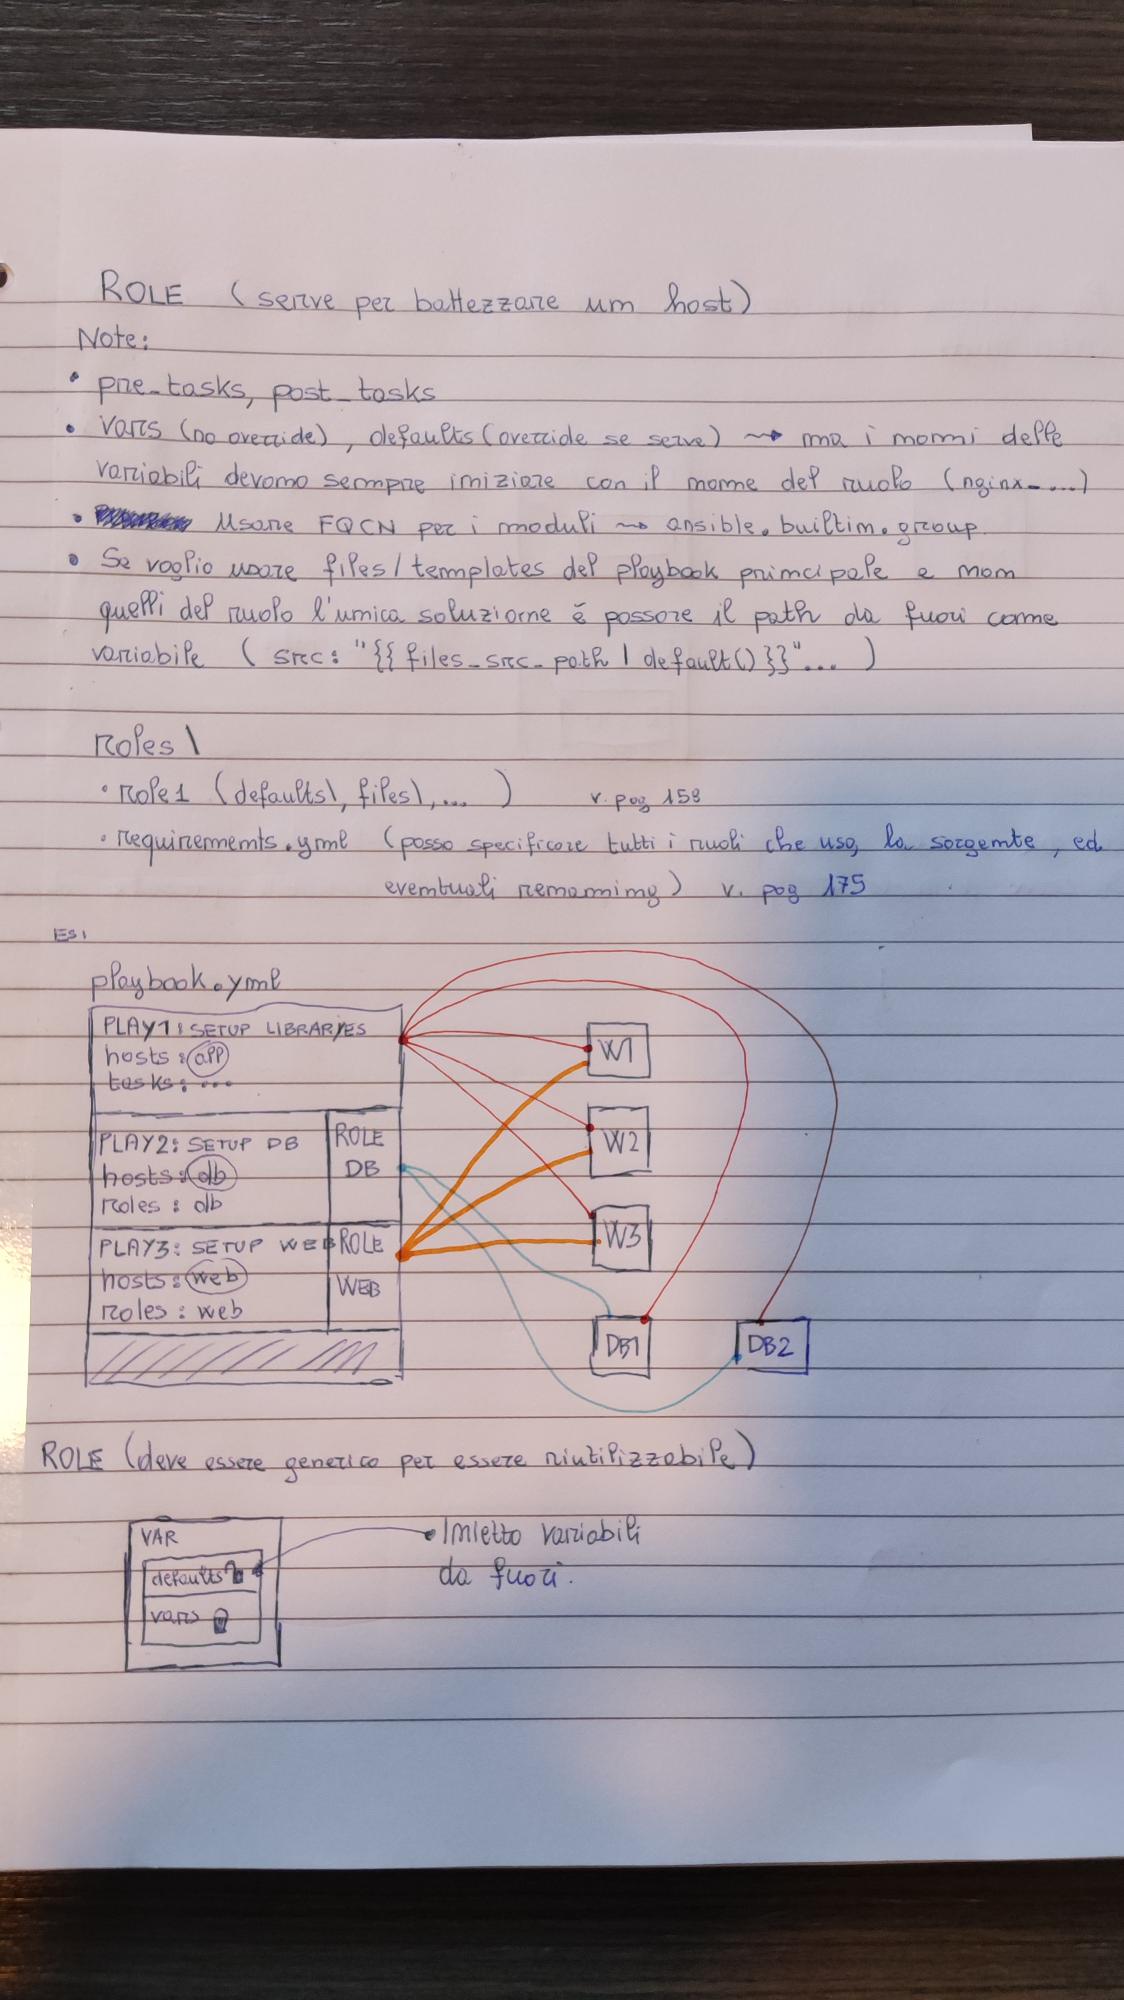 ROLE (serve per battezzare un host)
Note:
• pre_tasks, post_tasks
• vars (no override), defaults (override se serve) ⤳ ma i nomi delle
variabili devono sempre iniziare con il nome del ruolo (nginx_...)
• Usare FQCN per i moduli ⤳ ansible.builtin.group
• Se voglio usare files/templates del playbook principale e non
quelli del ruolo l'unica soluzione é passare il path da fuori come
variabile ( src: "{{ files_src_path | default() }}"... )
roles\
• role1 (defaults\, files\, ... ) v. pag 159
• requirements.yml (posso specificare tutti i ruoli che uso, la sorgente, ed
eventuali renaming) v. pag 175
ES:
playbook.yml
PLAY1: SETUP LIBRARIES
hosts: app
tasks: ...
PLAY2: SETUP DB
hosts: db
roles: db
ROLE
DB
PLAY3: SETUP WEB
hosts: web
roles: web
ROLE
WEB
W1
W2
W3
DB1
DB2
ROLE (deve essere generico per essere riutilizzabile)
VAR
defaults
vars
• Inietto variabili
da fuori.